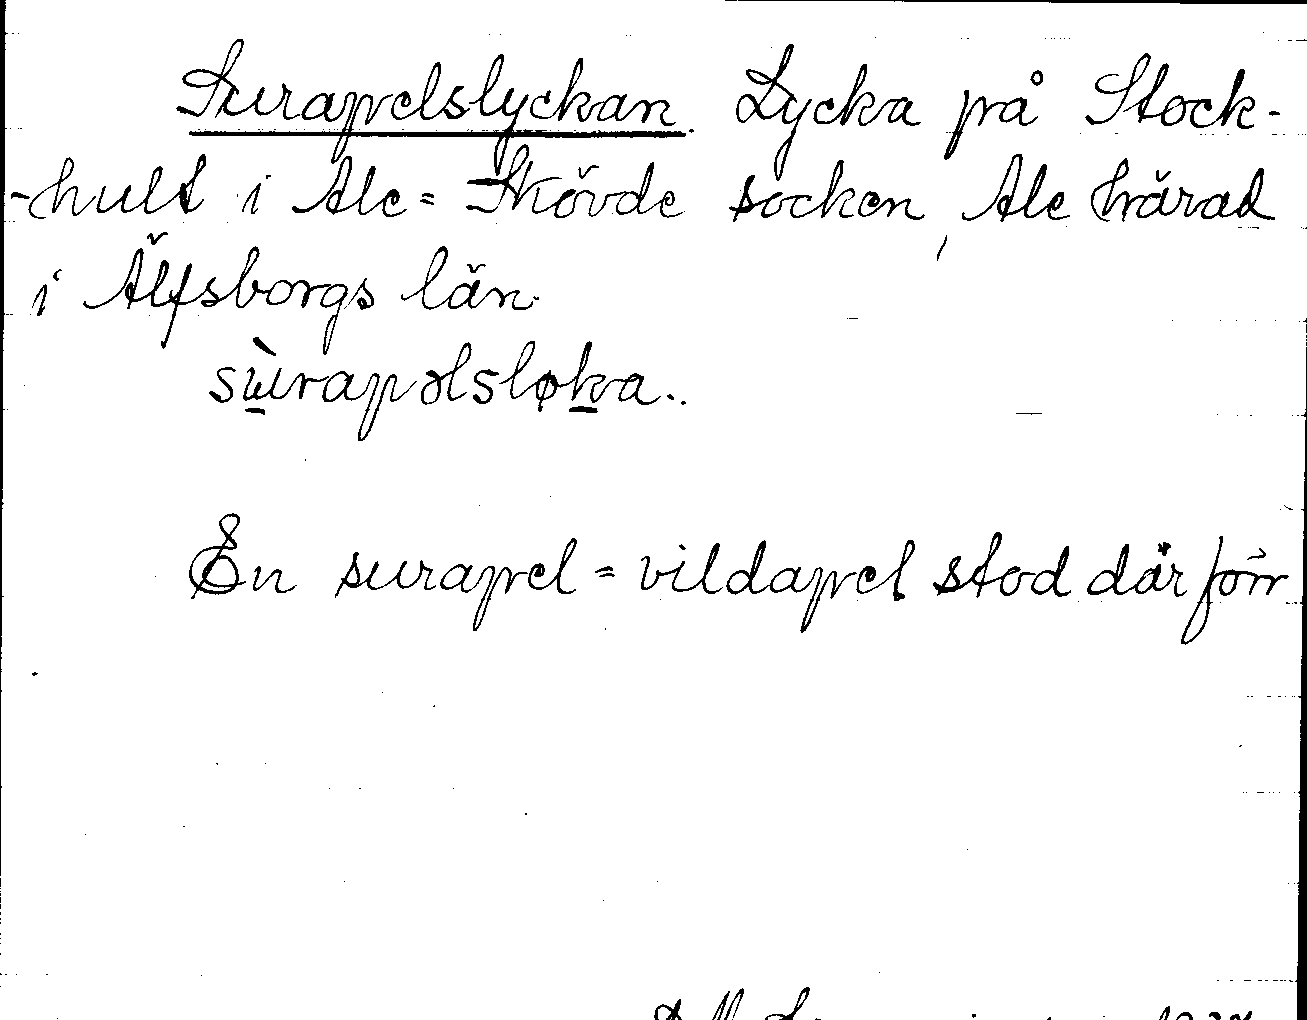 Surapelslyckan. Lycka på Stock-
-hult i Ale=Skövde socken, Ale härad
i Älfsborgs län.
sùrapəlsløka..
En surapel = vildapel stod där förr